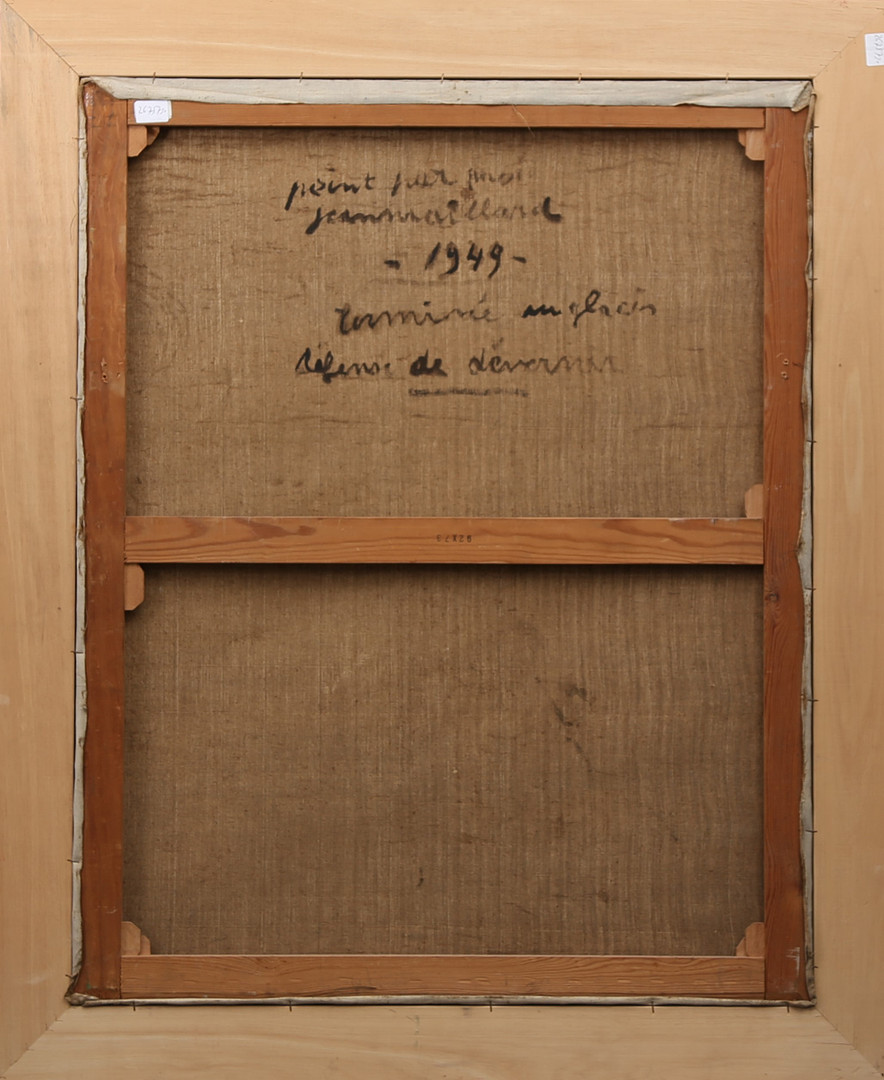 peint par moi
jeanmaillard
- 1949 -
terminée au glacis
défense de dévernir
92X73